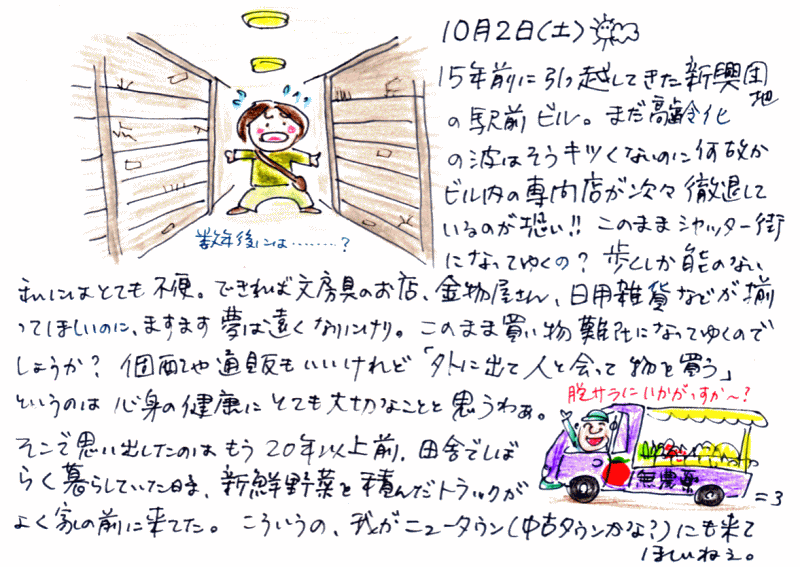 10月2日(土)
15年前に引っ越してきた新興団地
の駅前ビル。まだ高齢化
の波はそうキツくないのに何故か
ビル内の専門店が次々徹退して
いるのが恐い!! このままシャッター街
になってゆくの? 歩くしか能のない
数年後には………?
私にはとても不便。できれば文房具のお店、金物屋さん、日用雑貨などが揃
ってほしいのに、ますます夢は遠くなりにけり。このまま買い物難民になってゆくので
しょうか? 個配や通販もいいけれど「外に出て人と会って物を買う」
というのは心身の健康にとても大切なことと思うわぁ。
脱サラにいかがっすか〜?
そこで思い出したのはもう20年以上前、田舎でしば
らく暮らしていた時、新鮮野菜を積んだトラックが
無農薬
よく家の前に来てた。こういうの、我がニュータウン(中古タウンかな?)にも来て
ほしいねぇ。